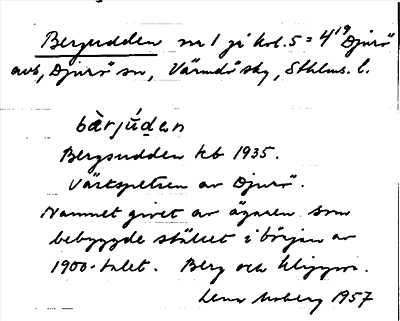 Bergudden nr 1 på kol. 5 = 4¹⁹ Djurö
avs, Djurö sn, Värmdö skg, Sthlms. l.
bàrjúden
Bergsudden kb 1935.
Västspetsen av Djurö.
Namnet givet av ägaren som
bebyggde stället i början av
1900-talet. Berg och klippor.
Lena Moberg 1957